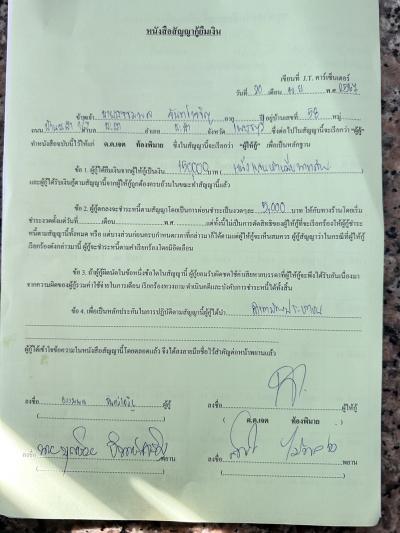 หนังสือสัญญากู้ยืมเงิน
เขียนที่ J.T. คาร์เซ็นเตอร์
วันที่ 20 เดือน พ.ศ. 2567
ข้าพเจ้า อายุ ปี อยู่บ้านเลขที่ 52 หมู่
ถนน ตำบล อำเภอ จังหวัด เพชรบุรี ซึ่งต่อไปในสัญญานี้จะเรียกว่า "ผู้กู้"
ทำหนังสือฉบับนี้ไว้ให้แก่ ด.ต.เจต ท้องพิมาย ซึ่งในสัญญานี้จะเรียกว่า "ผู้ให้กู้" เพื่อเป็นหลักฐาน
ข้อ 1. ผู้กู้ได้ยืมเงินจากผู้ให้กู้เป็นเงิน บาท (
และผู้กู้ได้รับเงินกู้ตามสัญญานี้จากผู้ให้กู้ถูกต้องครบถ้วนในขณะทำสัญญานี้แล้ว
ข้อ 2. ผู้กู้ตกลงจะชำระหนี้ตามสัญญาโดยเป็นการผ่อนชำระเป็นงวดๆละ 5,000 บาท ให้กับทางร้านโดยเริ่ม
ชำระงวดตั้งแต่วันที่ เดือน พ.ศ. แต่ทั้งนี้ไม่เป็นการตัดสิทธิของผู้ให้กู้ที่จะเรียกร้องให้ผู้กู้ชำระ
หนี้ตามสัญญานี้ทั้งหมด หรือ แต่บางส่วนก่อนครบกำหนดเวลาที่กล่าวมาก็ได้ตามแต่ผู้ให้กู้จะเห็นสมควร ผู้กู้สัญญาว่าในกรณีที่ผู้ให้กู้
เรียกร้องดังกล่าวมานี้ ผู้กู้จะชำระหนี้ตามคำเรียกร้องโดยมิบิดเบือน
ข้อ 3. ถ้าผู้กู้ผิดนัดในข้อหนึ่งข้อใดในสัญญานี้ ผู้กู้ยอมรับผิดชดใช้ค่าเสียหายบรรดาที่ผู้ให้กู้จะพึงได้รับอันเนื่องมา
จากความผิดของผู้กู้รวมค่าใช้จ่ายในการเตือน เรียกร้องทวงถาม ดำเนินคดีและบังคับการชำระหนี้ได้ทั้งสิ้น
ข้อ 4. เพื่อเป็นหลักประกันในการปฏิบัติตามสัญญานี้ผู้กู้ได้นำ
ผู้กู้ได้เข้าใจข้อความในหนังสือสัญญานี้โดยตลอดแล้ว จึงได้ลงลายมือชื่อไว้สำคัญต่อหน้าพยานแล้ว
ลงชื่อ ผู้กู้ ลงชื่อ ผู้ให้กู้
( ) ( ด.ต.เจต ท้องพิมาย )
ลงชื่อ พยาน ลงชื่อ พยาน
( ) ( )